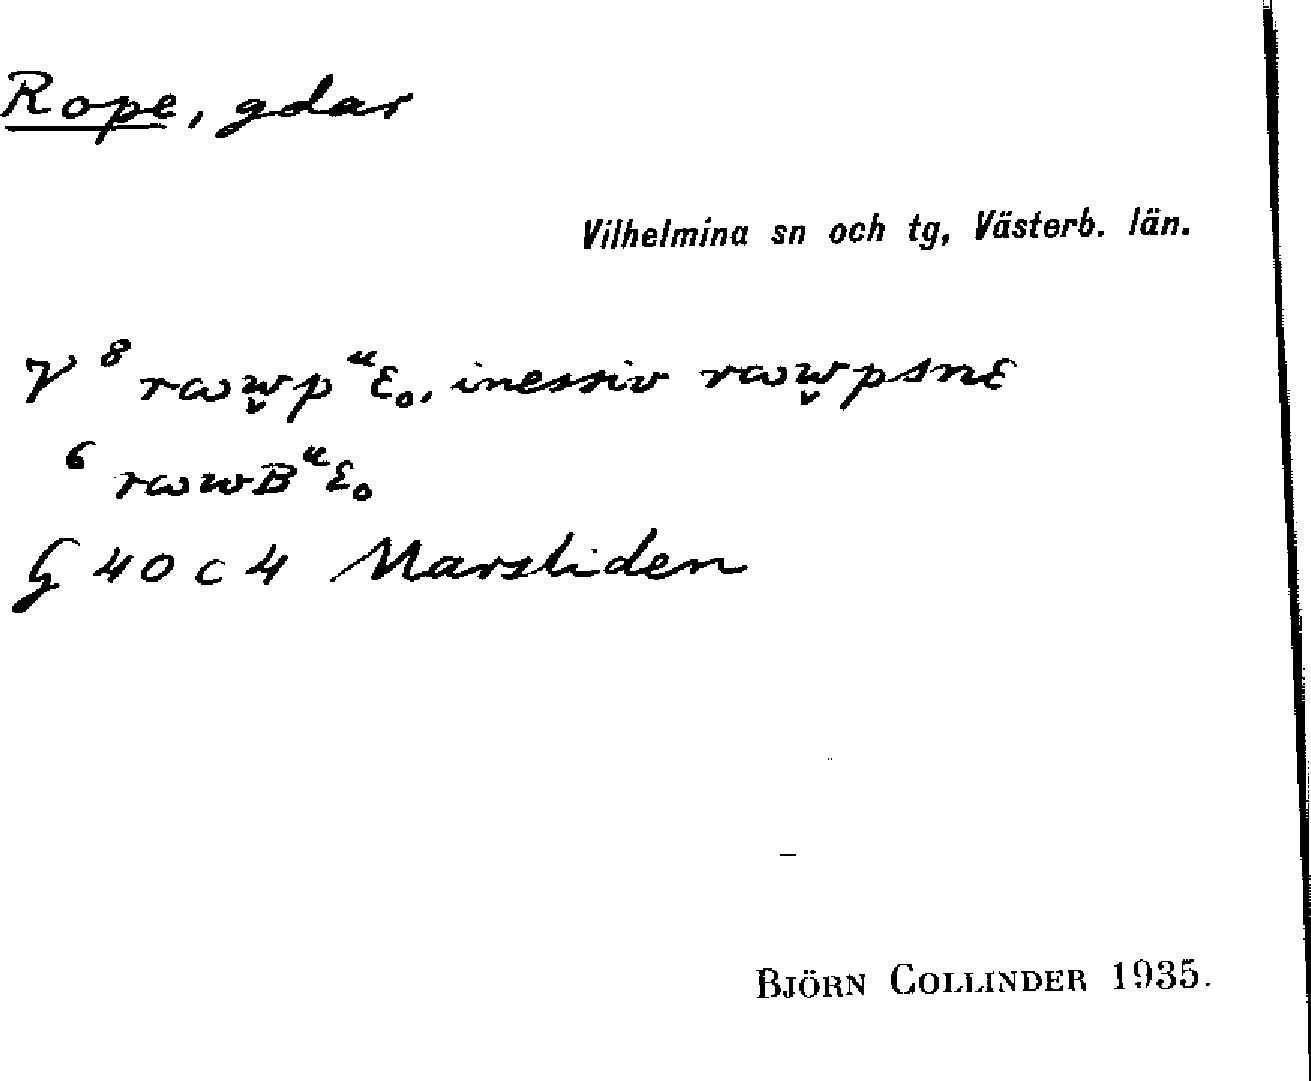 Rope, gdar
Vilhelmina sn och tg, Västerb. län.
V ⁸ rɷw̬pᵚɛ₀, inessiv rɷw̬psnɛ
⁶ rɷwBᵚɛ₀
G 40 c 4 Marsliden
BJÖRN COLLINDER 1935.